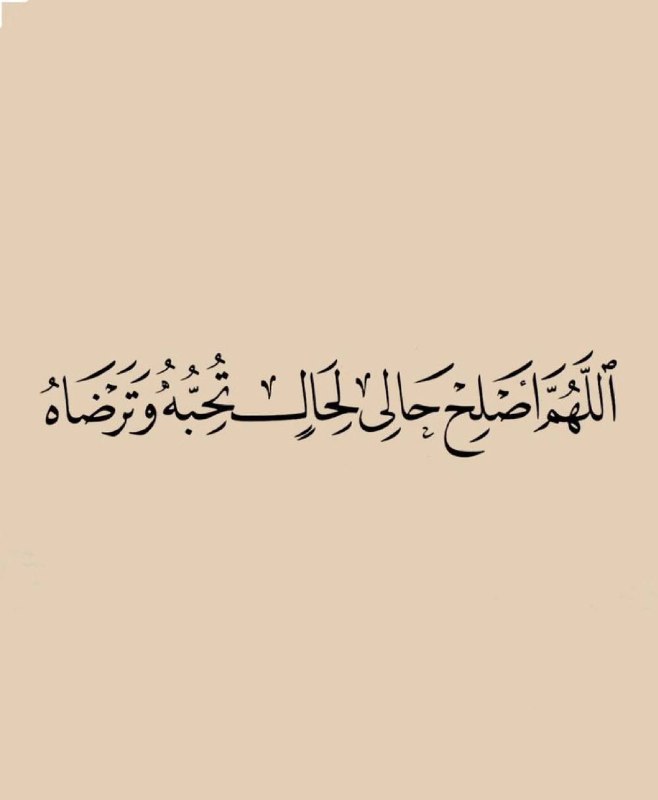 ٱللَّهُمَّ أَصْلِحْ حَالِى لِحَالٍ تُحِبُّهُ وَتَرْضَاهُ